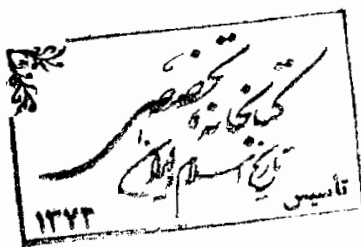 کتابخانه تخصصی
تاریخ اسلام و ایران
تأسیس
۱۳۷۳